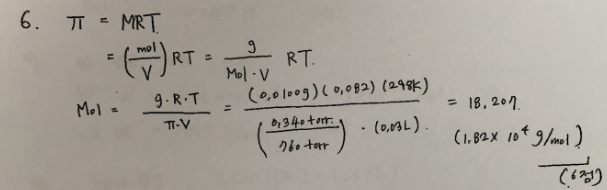 6. π = MRT
= (mol/V) RT = g/Mol·V RT.
Mol = g·R·T/π·V = (0,0100g)(0,082)(298K)/(0,340torr./760torr)·(0,03L). = 18,207.
(1.82 × 10⁴ g/mol)
(6점)